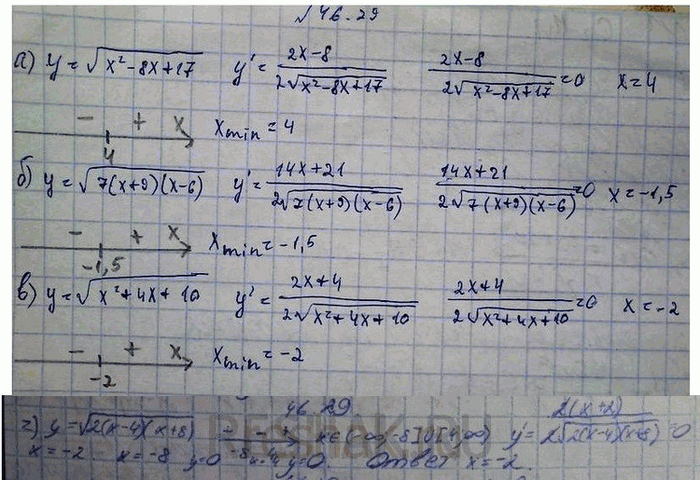 №46.29
а) y = √(x²-8x+17) y' = (2x-8)/(2√(x²-8x+17)) (2x-8)/(2√(x²-8x+17)) =0 x=4
- + x xmin = 4
4
б) y = √(7(x+9)(x-6)) y' = (14x+21)/(2√(7(x+9)(x-6))) (14x+21)/(2√(7(x+9)(x-6))) =0 x=-1,5
- + x xmin = -1,5
-1,5
в) y = √(x²+4x+10) y' = (2x+4)/(2√(x²+4x+10)) (2x+4)/(2√(x²+4x+10)) =0 x=-2
- + x xmin = -2
-2
46.29
г) y = √(2(x-4)(x+8)) + - + x∈(-∞,-8]U[4,∞) y' = 2(x+2)/(2√(2(x-4)(x+8))) =0
x=-2 x=-8 y=0 -8 x=4 y=0. Ответ x=-2.